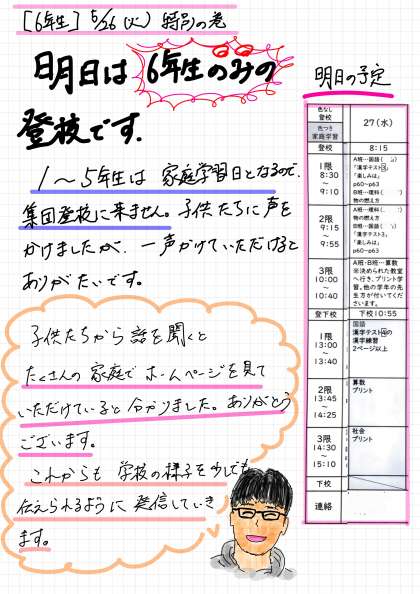 [6年生] 5/26(火) 特別の巻
明日は 6年生のみの
登校です.
1〜5年生は 家庭学習日となるので、
集団登校に来ません。子供たちに声を
かけましたが、一声かけていただけると
ありがたいです。
子供たちから話を聞くと
たくさんの家庭でホームページを見て
いただけていると分かりました。ありがとう
ございます。
これからも 学校の様子を少しでも
伝えられるように発信していき
ます。
明日の予定
色なし
登校
色つき
家庭学習
27(水)
登校 8:15
1限
8:30
〜
9:10
A班…国語(
「漢字テスト
「楽しみは」
p60〜p63
B班…理科(
物の燃え方
2限
9:15
〜
9:55
A班…理科(
物の燃え方
B班…国語(
「漢字テスト3」
「楽しみは」
p60〜p63
3限
10:00
〜
10:40
A班・B班…算数
※決められた教室
へ行き、プリント学
習。他の学年の先
生方が付いてくださ
います。
登下校 下校10:55
1限
13:00
〜
13:40
国語
漢字テスト④の
漢字練習
2ページ以上
2限
13:45
〜
14:25
算数
プリント
3限
14:30
〜
15:10
社会
プリント
下校
連絡